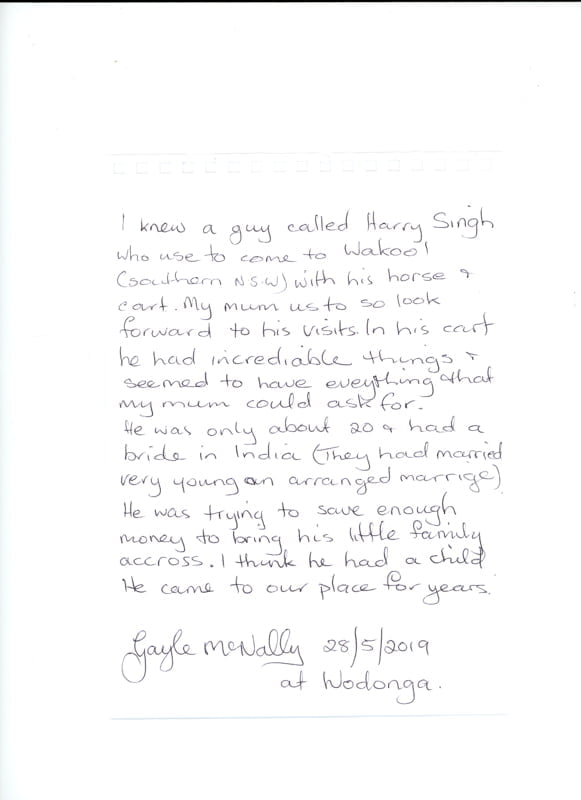 I knew a guy called Harry Singh
who use to come to Wakool
(southern N.S.W) with his horse &
cart. My mum us to so look
forward to his visits. In his cart
he had increadiable things &
seemed to have eveything that
my mum could ask for.
He was only about 20 & had a
bride in India (They had married
very young an arranged marrige)
He was trying to save enough
money to bring his little family
accross. I think he had a child
He came to our place for years.
Gayle McNally 28/5/2019
at Wodonga.